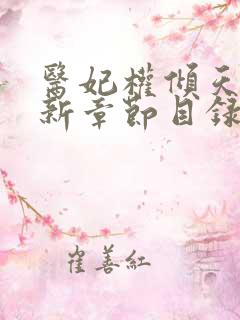 醫妃權傾天
新章節目錄
崔善紅